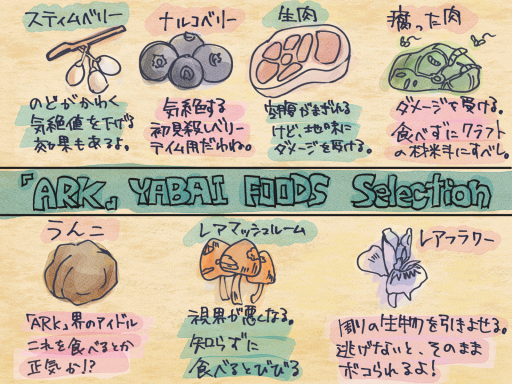 スティムベリー
のどがかわく
気絶値を下げる
効果もあるよ。
ナルコベリー
気絶する
初見殺しベリー
テイム用だわね。
生肉
空腹がまぎれる
けど、地味に
ダメージを受ける。
腐った肉
ダメージを受ける。
食べずにクラフト
の材料にすべし。
「ARK」 YABAI FOODS Selection
うんこ
「ARK」界のアイドル
これを食べるとか
正気か!?
レアマッシュルーム
視界が悪くなる。
知らずに
食べるとびびる
レアフラワー
周りの生物を引きよせる。
逃げないと、そのまま
ボコられるよ!